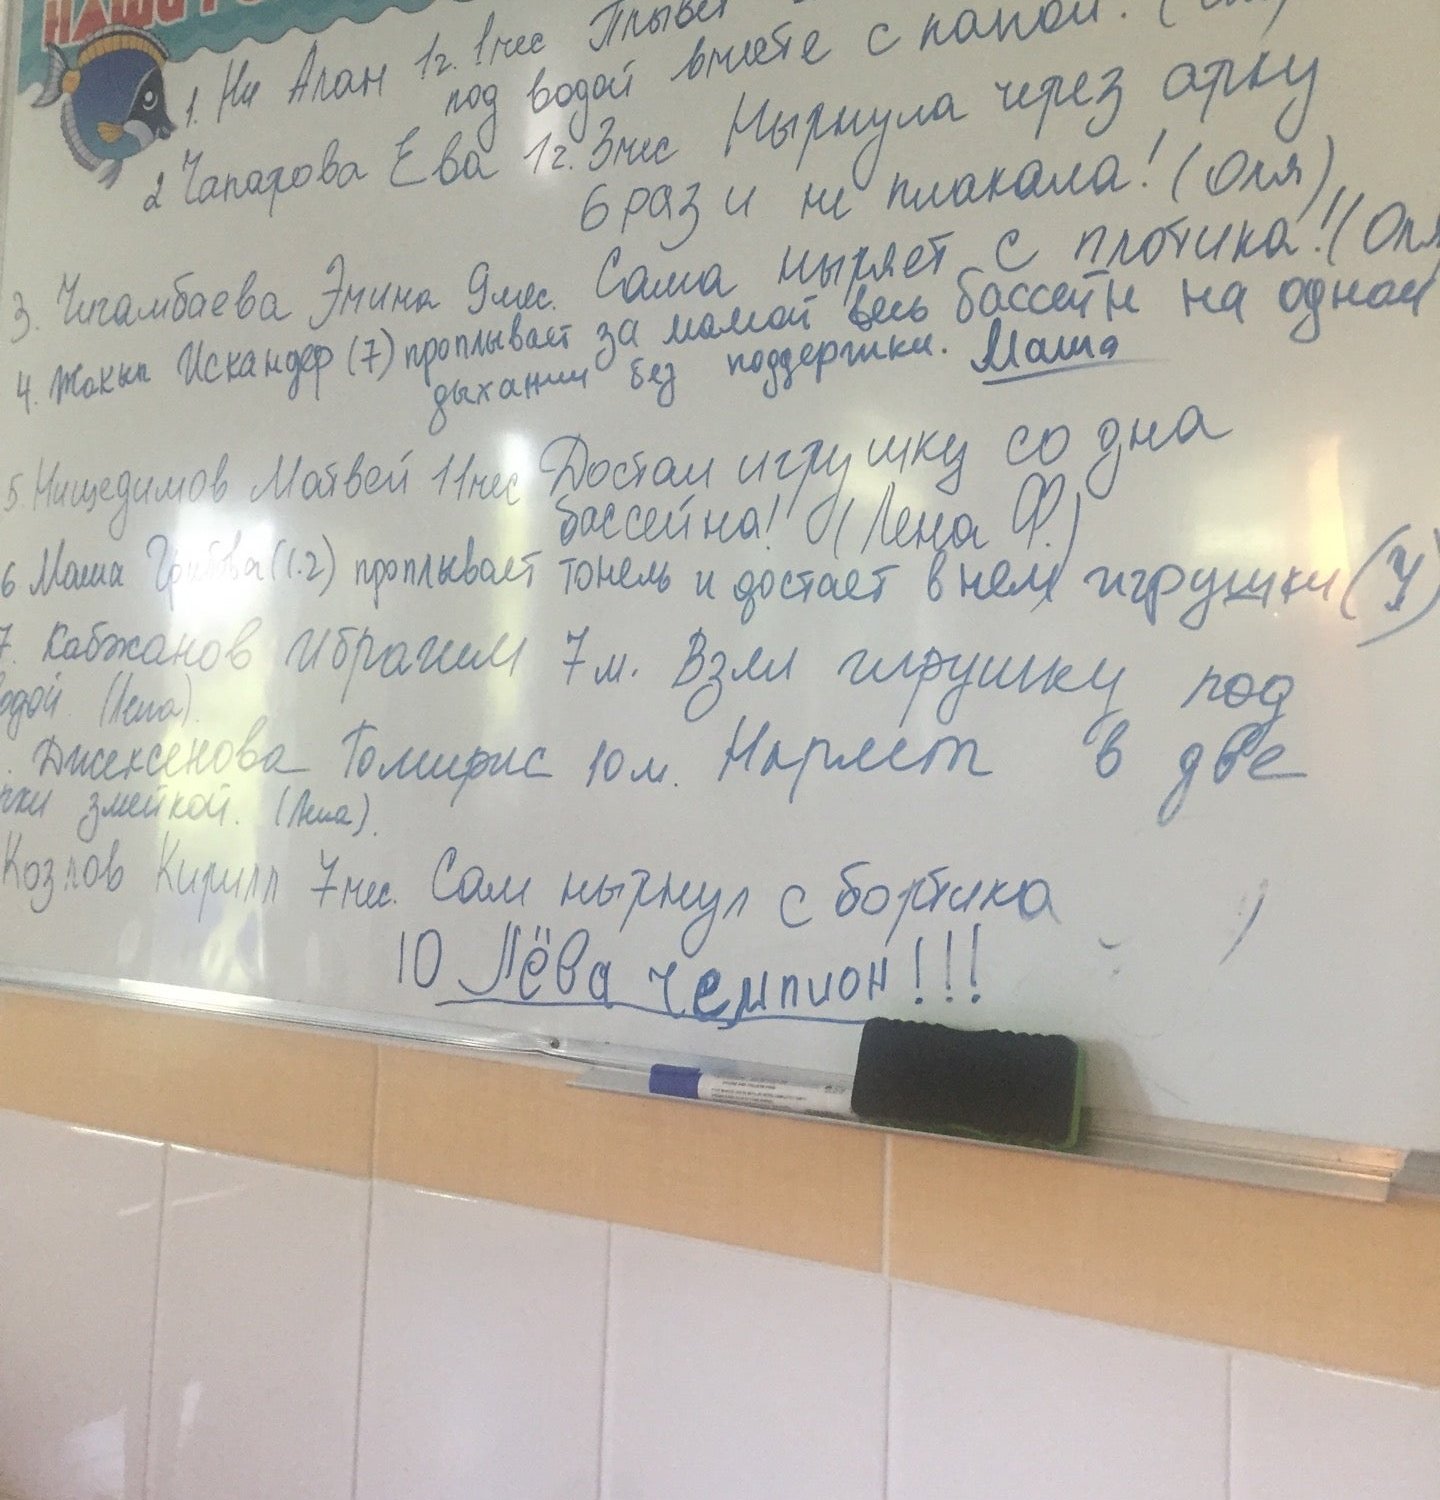 НАШИ
1. Ни Алан 1г. 1мес Плывёт
под водой вместе с папой! (
2 Чапарова Ева 1г. 3мес Нырнула через арку
6 раз и не плакала! (Оля)
3. Чигамбаева Эмина 9мес. Сама ныряет с плотика! (Оля
4. Жакып Искандер (7) проплывает за мамой весь бассейн на одной
дыхании без поддержки. Маша
5. Нищедимов Матвей 11мес Достал игрушку со дна
бассейна! (Лена Ф.)
6 Маша (1.2) проплывает тонель и достает в нем игрушки (У)
7. Кабжанов Ибрагим 7м. Взял игрушку под
одой. (Лена).
. Джексенова Томирис 10м. Ныряет в две
змейкой. (Лена).
Козлов Кирилл 7мес. Сам нырнул с бортика
10 Лёва чемпион!!!